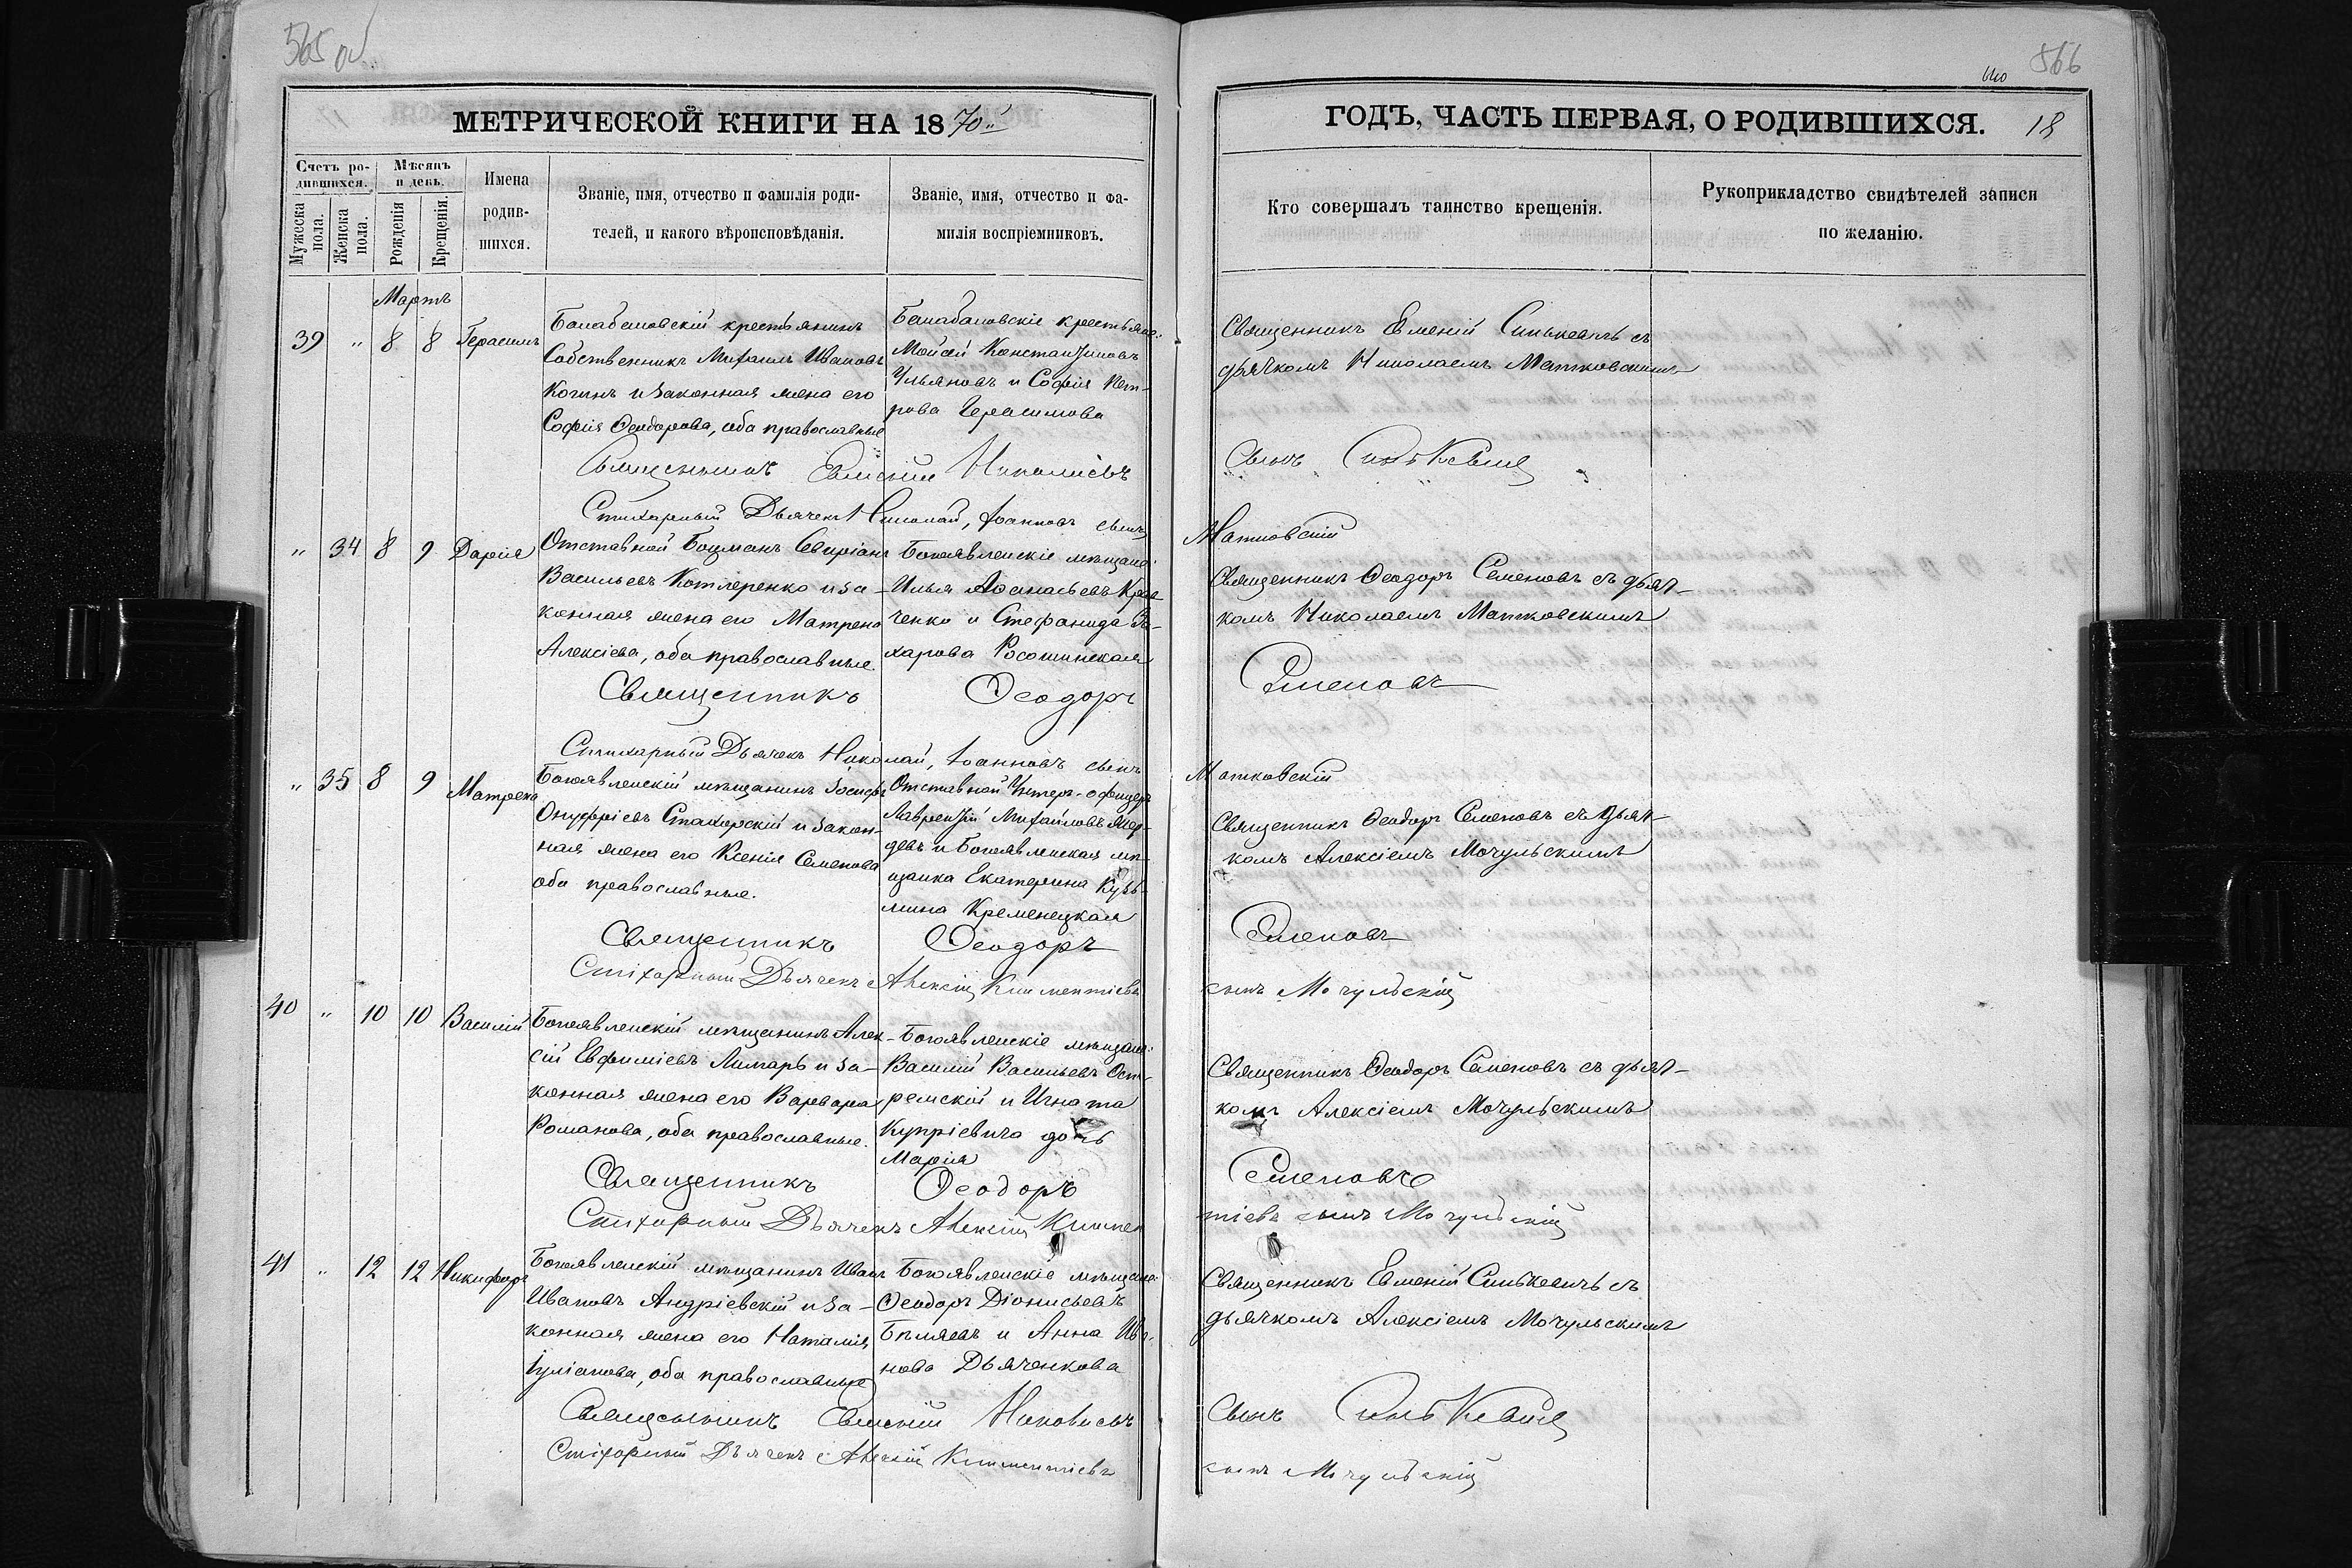 565 об
566
МЕТРИЧЕСКОЙ КНИГИ НА 1870й
ГОДЪ, ЧАСТЬ ПЕРВАЯ, О РОДИВШИХСЯ. 18
Счетъ ро-
дившихся.
Мужеска пола.
Женска пола.
Мѣсяцъ
и день.
Рожденія
Крещенія.
Имена
родив-
шихся.
Званіе, имя, отчество и фамилія роди-
телей, и какого вѣроисповѣданія.
Званіе, имя, отчество и фа-
милія воспріемниковъ.
Кто совершалъ таинство крещенія.
Рукоприкладство свидѣтелей записи
по желанію.
Мартъ
39 " 8 8 Герасимъ
Балабановскій крестьянинъ
Собственникъ Михаилъ Ивановъ
Когинъ и законная жена его
Софія Ѳеодорова, оба православные
Балабановскіе крестьяне:
Мойсей Константиновъ
Ульяновъ и Софія Пет-
рова Герасимова
Священникъ Евменій Синькевичъ съ
дьячкомъ Николаемъ Матковскимъ
Священникъ Евменій Николаевъ
Сынъ Синькевич
Стихарный Дьячекъ Николай, Іоанновъ сынъ
Матковскій
" 34 8 9 Дарія
Отставной Боцманъ Севиріанъ
Васильевъ Котляренко и за-
конная жена его Матрена
Алексіева, оба православные.
Богоявленскіе мѣщане:
Илья Аѳанасьевъ
ченко и Стефанида За-
харова Росошинская
Священникъ Ѳеодоръ Семеновъ съ дьяч-
комъ Николаемъ Матковскимъ
Священникъ Ѳеодоръ
Семеновъ
Стихарный Дьячекъ Николай, Іоанновъ сынъ
Матковскій
" 35 8 9 Матрена
Богоявленскій мѣщанинъ Іосифъ
Онуфріевъ Стахорскій и закон-
ная жена его Ксенія Семенова
оба православные.
Отставной Унтеръ-офицеръ
Лаврентій Михайловъ
девъ и Богоявленская мѣ-
щанка Екатерина Кузь-
мина Кременецкая
Священникъ Ѳеодоръ Семеновъ съ дьяч-
комъ Алексіемъ Мочульскимъ
Священникъ Ѳеодоръ
Семеновъ
Стіхарный Дьячекъ Алексій Климентіевъ
сынъ Мочульскій
40 " 10 10 Василій
Богоявленскій мѣщанинъ Алек-
сій Евфиміевъ Лимарь и за-
конная жена его Варвара
Романова, оба православные.
Богоявленскіе мѣщане:
Василій Васильевъ Ост-
ремскій и Игната
Купріевича дочь
Марія
Священникъ Ѳеодоръ Семеновъ съ дьяч-
комъ Алексіемъ Мочульскимъ
Священникъ Ѳеодоръ
Семеновъ
Стіхарный Дьячекъ Алексій Климен
тіевъ сынъ Мочульскій
41 " 12 12 Никифоръ
Богоявленскій мѣщанинъ Иванъ
Ивановъ Андріевскій и за-
конная жена его Наталія
Іуліанова, оба православные
Богоявленскіе мѣщане:
Ѳеодоръ Діонисьевъ
Бѣляевъ и Анна Ива-
нова Дьяченкова
Священникъ Евменій Синькевичъ съ
дьячкомъ Алексіемъ Мочульскимъ
Священникъ Евменій Николаевъ
Сынъ Синькевич
Стіхарный Дьячекъ Алексій Климентіевъ
сынъ Мочульскій